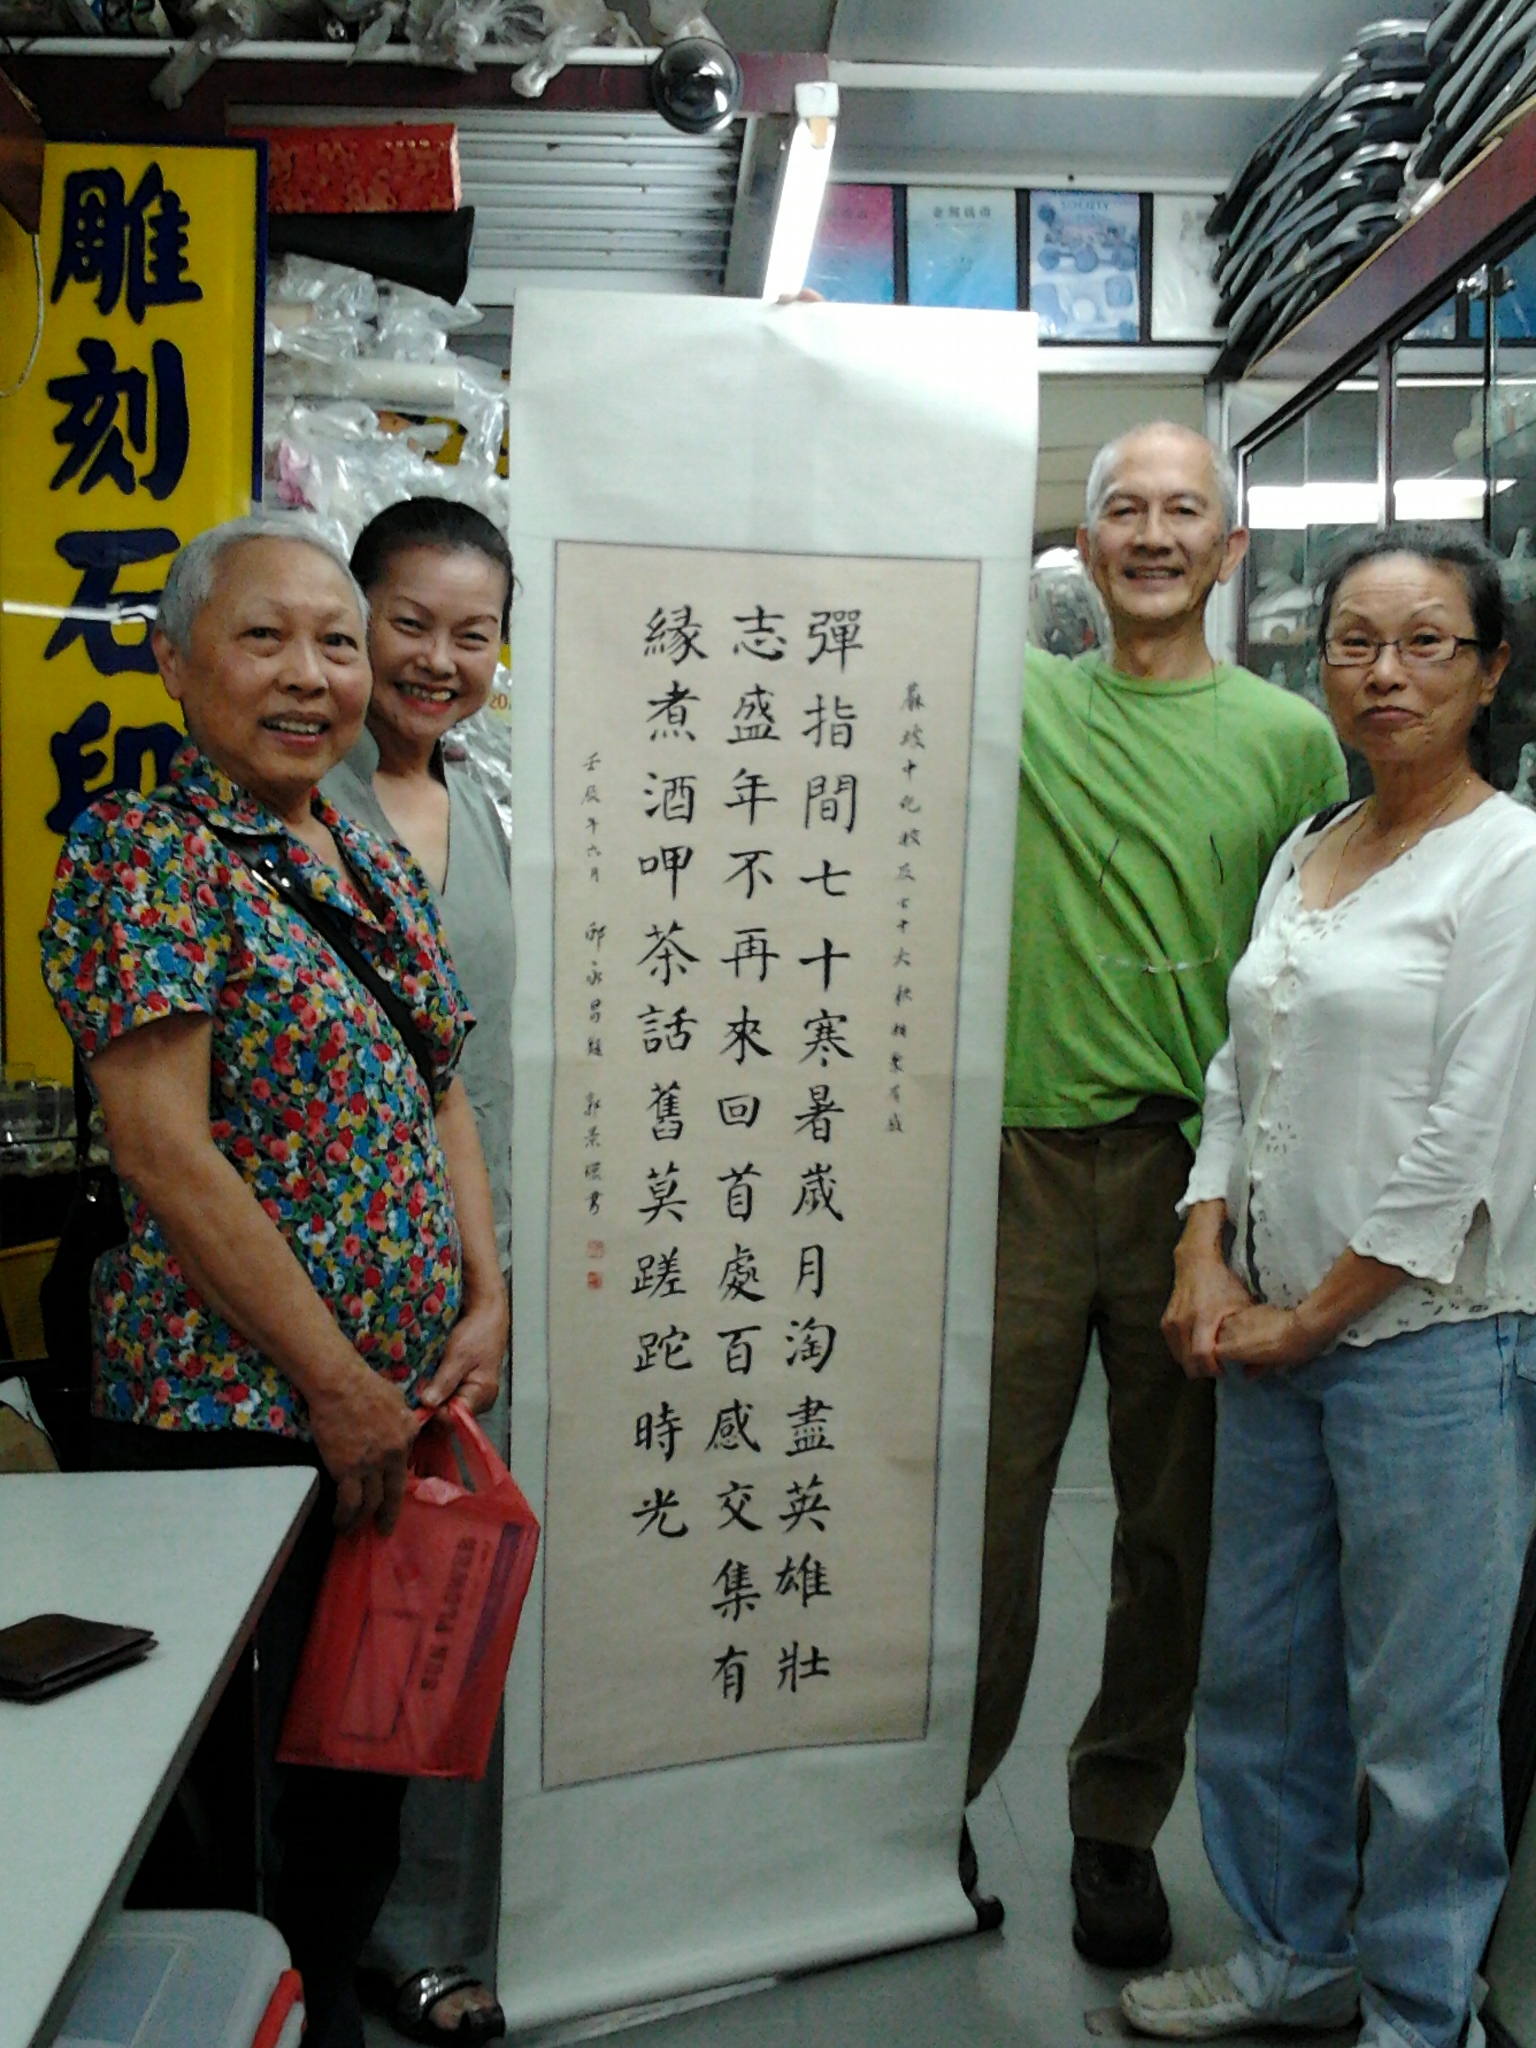 雕刻石印
SOCIETY
蔴坡中化校友七十大秩相聚有感
彈指間七十寒暑歲月淘盡英雄壯
志盛年不再來回首處百感交集有
緣煮酒呷茶話舊莫蹉跎時光
壬辰年六月 邱永昌題 郭景環書
SUN FLOWER